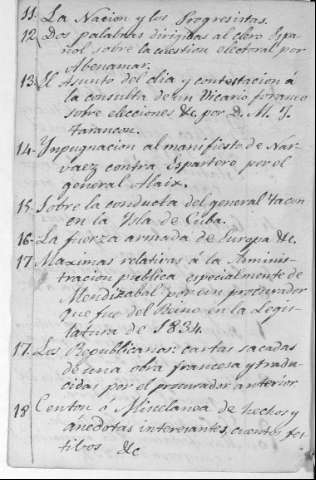 11. La Nacion y los Progresistas.
12. Dos palabras dirigidas al clero Espa-
ñol sobre la cuestion electoral por
Abenamar.
13. El Asunto del dia y contestacion á
la consulta de un Vicario foraneo
sobre elecciones &c. por D. M. J.
Tarancon.
14. Ynpugnacion al manifiesto de Nar-
vaez contra Espartero por el
general Alaix.
15. Sobre la conducta del general Tacon
en la Isla de Cuba.
16. La fuerza armada de Europa &c.
17. Maximas relativas á la Adminis-
tracion publica especialmente de
Mendizabal por un procurador
que fue del Reino en la Legis-
latura de 1834.
17. Los Republicanos: cartas sacadas
de una obra francesa y tradu-
cidas por el procurador anterior
18 Centon ó Micelanea de hechos y
anécdotas interesantes, cuentos fes-
tibos &c